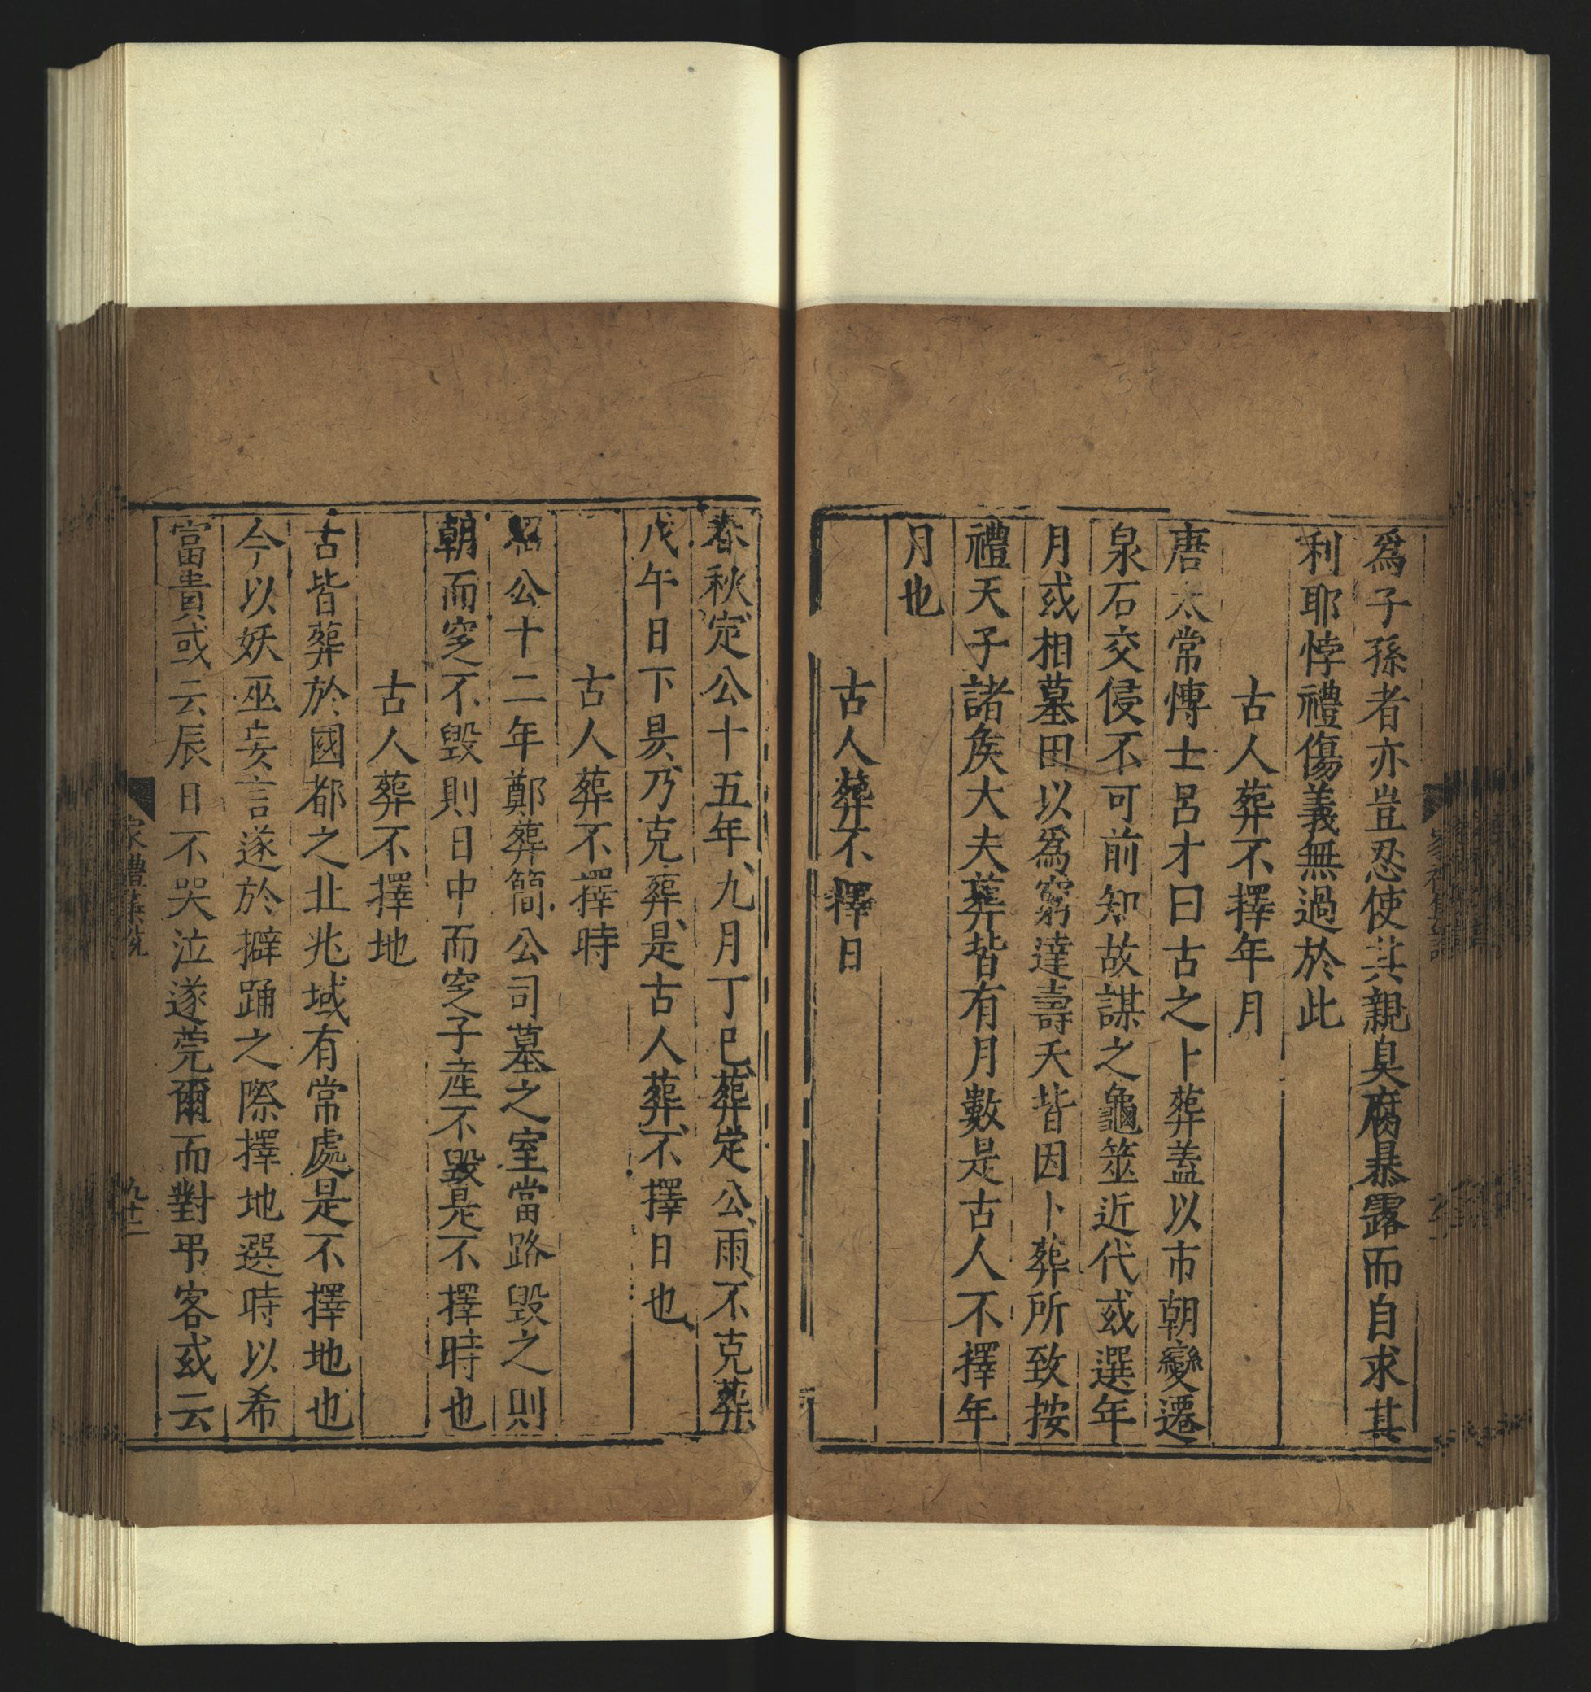 爲子孫者亦豈忍使其親臭腐暴露而自求其
利耶悖禮傷義無過於此
古人葬不擇年月
唐太常博士呂才曰古之卜葬蓋以市朝變遷
泉石交侵不可前知故謀之龜筮近代或選年
月或相墓田以爲窮達壽夭皆因卜葬所致按
禮天子諸矦大夫葬皆有月數是古人不擇年
月也
古人葬不擇日
春秋定公十五年九月丁巳葬定公雨不克葬
戊午日下昃乃克葬是古人葬不擇日也
古人葬不擇時
昭公十二年鄭葬簡公司墓之室當路毀之則
朝而窆不毀則日中而窆子產不毀是不擇時也
古人葬不擇地
古皆葬於國都之北兆域有常處是不擇地也
今以妖巫妄言遂於擗踊之際擇地選時以希
富貴或云辰日不哭泣遂莞爾而對弔客或云
家禮集說
九十二